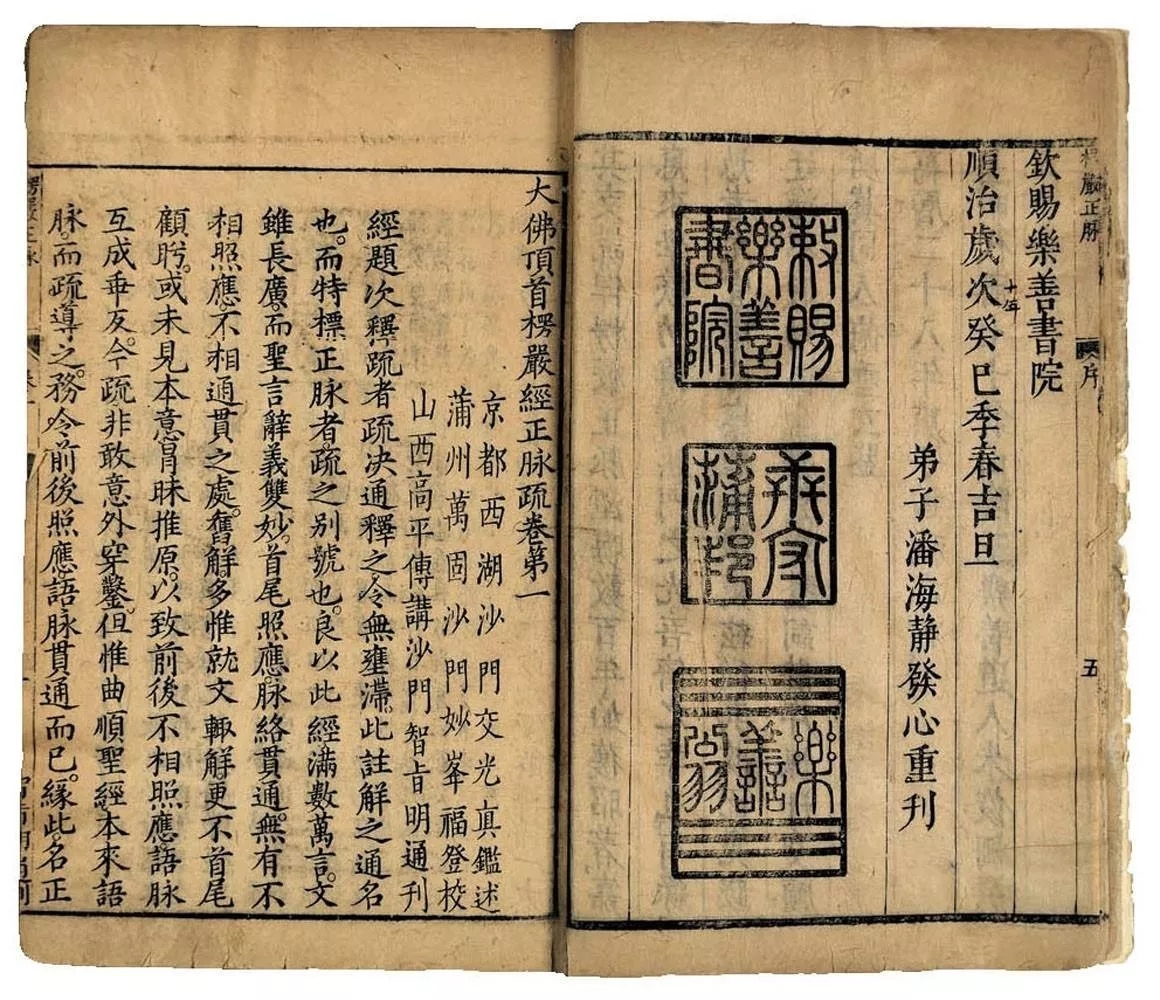 楞嚴正脉
序
五
欽賜樂善書院
順治十年歲次癸巳季春吉旦
弟子潘海静發心重刋
敕賜
樂善
書院
蒲
樂
善
翁
大佛頂首楞嚴經正脉疏卷第一
京都西湖沙門交光真鑑述
蒲州萬固沙門妙峯福登校
山西高平傳講沙門智旹明通刋
經題次釋疏者疏决通釋之令無壅滯。此註解之通名
也。而特標正脉者。疏之别號也。良以此經滿數萬言。文
雖長廣。而聖言辭義雙妙。首尾照應。脉絡貫通。無有不
相照應不相通貫之處。舊解多惟就文輙解更不首尾
顧盻。或未見本意。冐昧推原。以致前後不相照應語脉
互成乖反。今疏非敢意外穿鑿。但惟曲順聖經本來語
脉。而疏導之。務令前後照應語脉貫通而已。緣此名正
楞嚴正脉